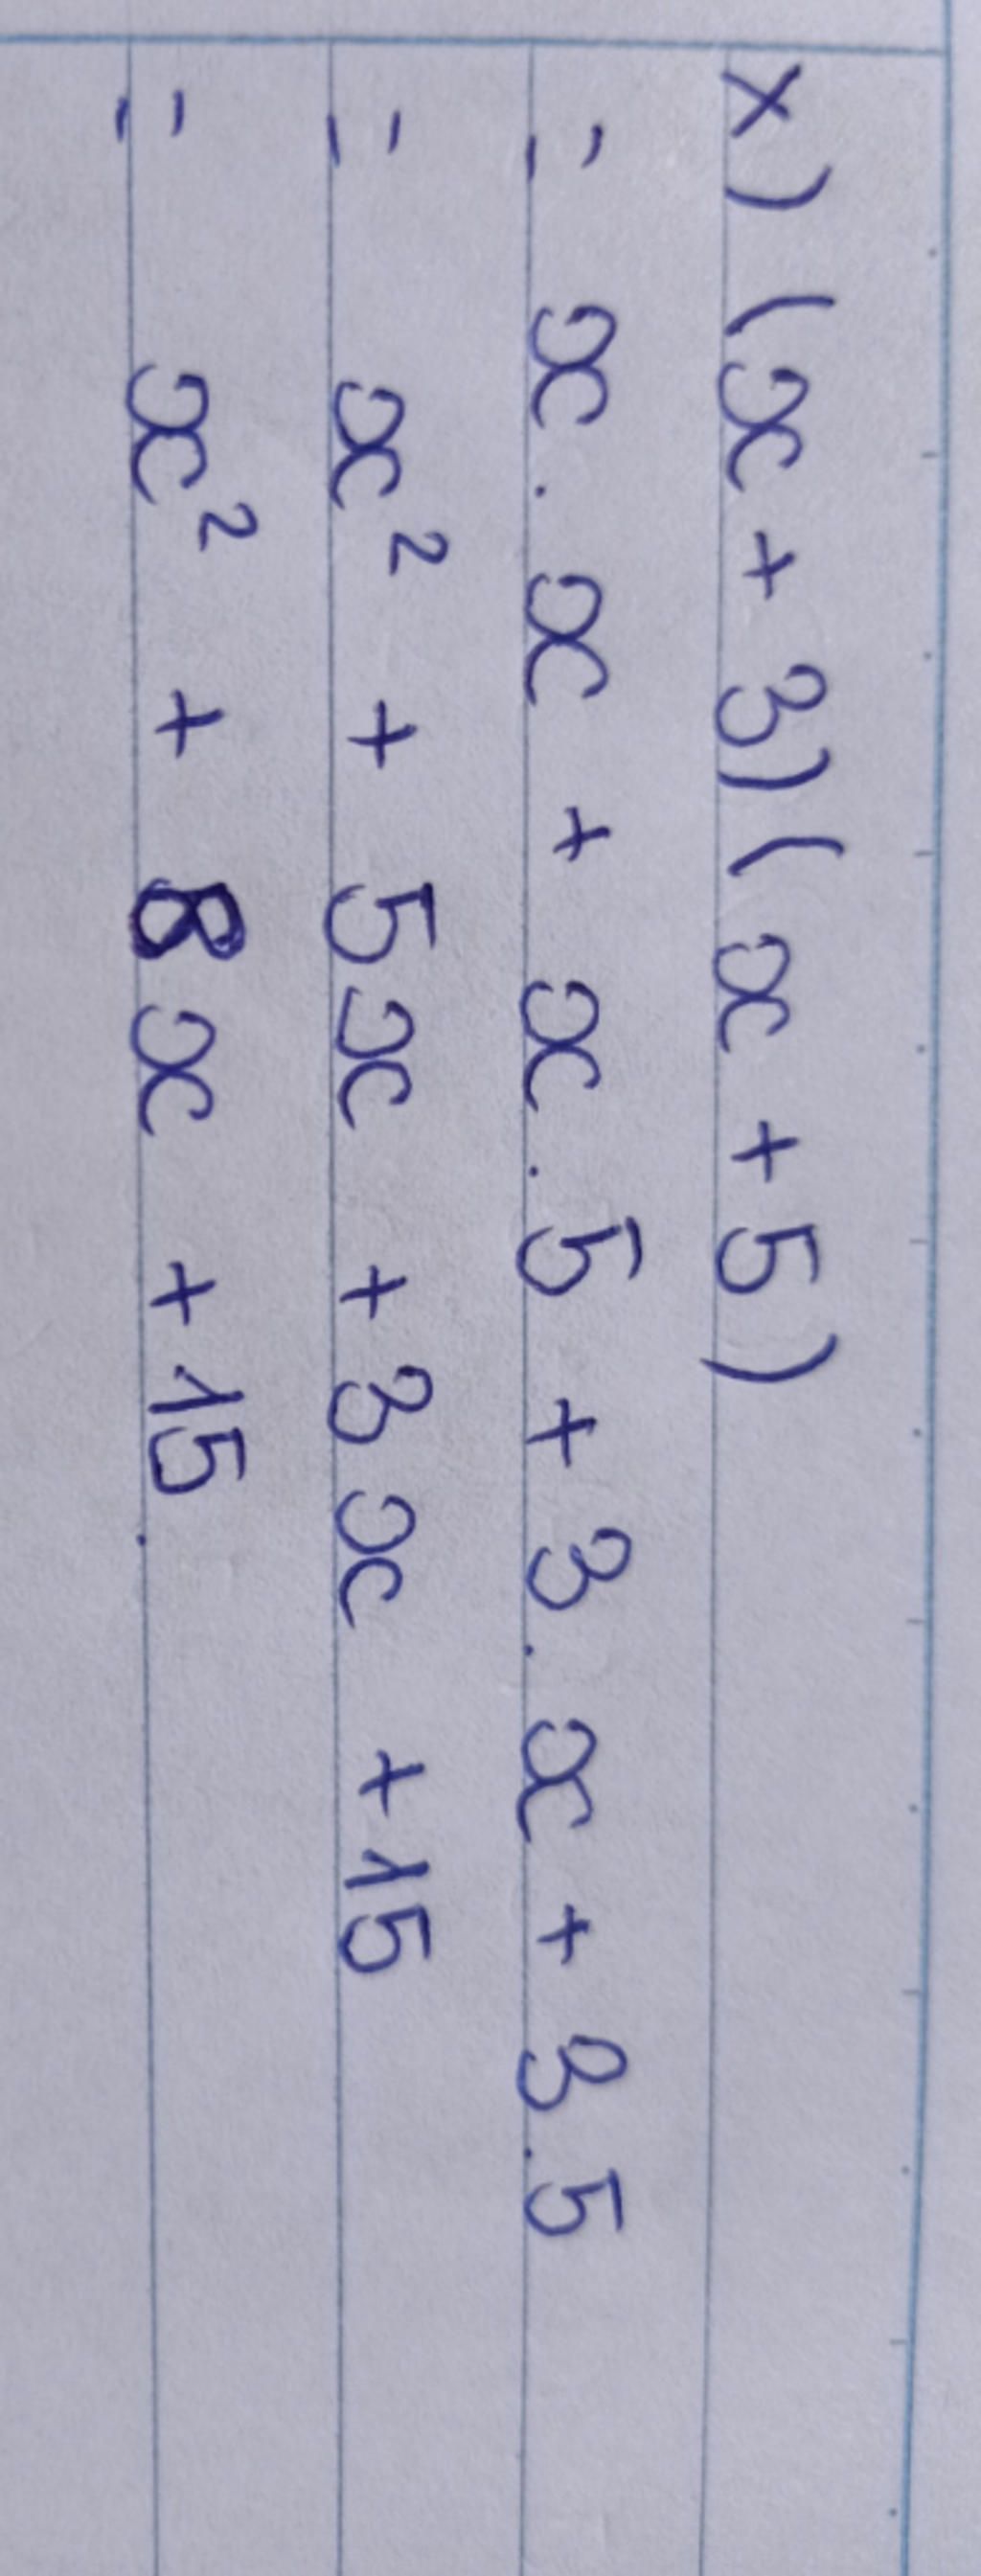 x) (x + 3)(x + 5)
= x . x + x . 5 + 3 . x + 3 . 5
= x² + 5x + 3x + 15
= x² + 8x + 15.